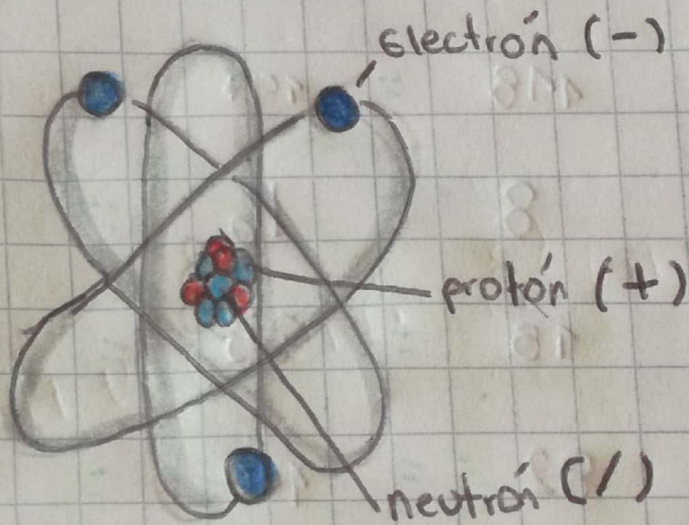 electrón (-)
protón (+)
neutrón (/)